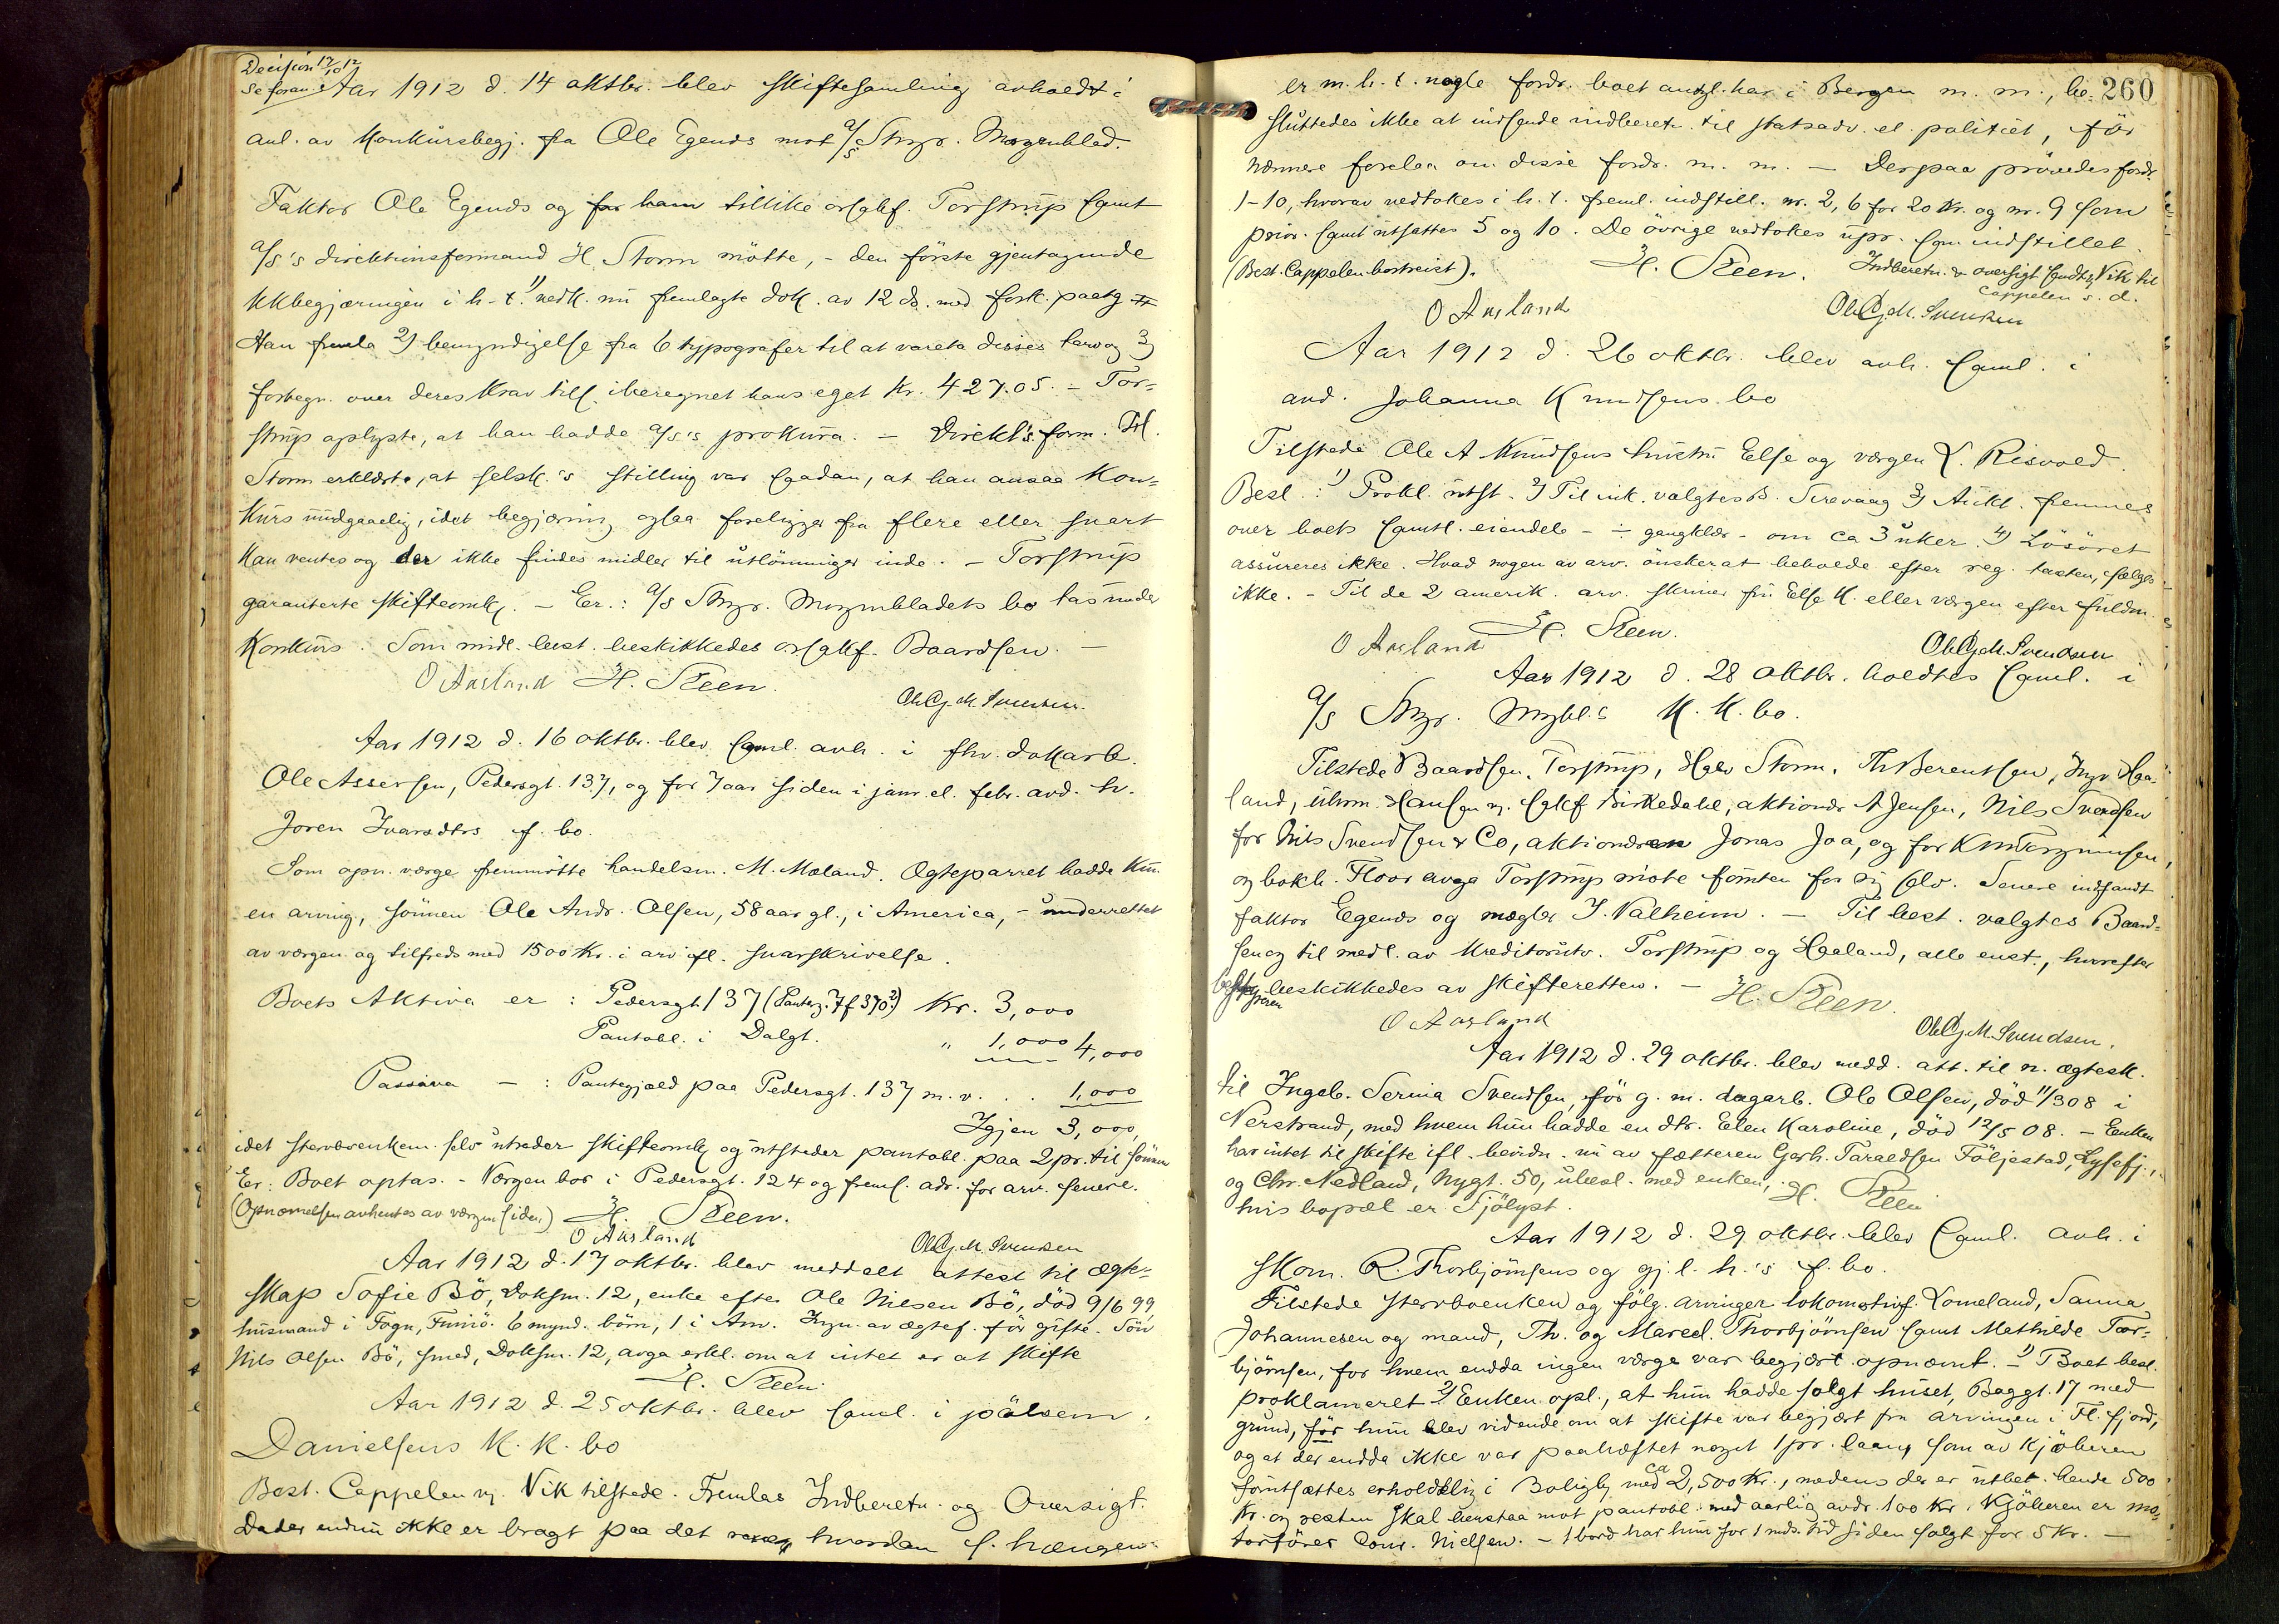 Decision 17/10 12
Se foran
Aar 1912 d. 14 oktbr. blev skiftesamling avholdt i
anl. av Konkursbegj. fra Ole Egends mot A/S Stvgr. Morgenblad.
Faktor Ole Egends og for ham tillike orsakf. Torstrup samt
A/S's direktionsformand H. Storm mötte, - den förste gjentagende
KKbegjæringen i h. t. 1) vedk. nu fremlagte dok. av 12 ds. med forsk. paateg
Han fremla 2) bemyndigelse fra 6 typografer til at vareta disses tarv og 3)
fortegn. over deres Krav tils. iberegnet hans eget Kr. 427.05. - Tor-
strup oplyste, at han hadde A/S's prokura. - Direkt's form. H.
Storm erklærte, at selsk.'s stilling var saadan, at han ansaa Kon-
kurs undgaaelig, idet begjæring ogsaa foreligger fra flere eller snart
kan ventes og der ikke findes midler til utlönninger inde. - Torstrup
garanterte skifteomk. - Er.: A/S Stvgr. Morgenbladets bo tas under
Konkurs. Som midl. best. beskikkedes orsakf. Baardsen. -
O Aasland H. Steen.
Ole G. M. Svendsen.
Aar 1912 d. 16 oktbr. blev saml. avh. i fhv. dokarb.
Ole Assersen, Pedersgt. 137, og for 7 aar siden i janr. el. febr. avd. h.
Joren Ivarsdtrs f. bo.
Som opn. værge fremmötte handelsm. M. Moland. Ægteparret hadde kun
en arving, sönnen Ole Andr. Olsen, 58 aar gl., i America, - underrettet
av værgen og tilfreds med 1500 Kr. i arv ifl. svarskrivelse.
Boets Aktiva er: Pedersgt 137 (Panteg. 7 f 370 2) Kr. 3,000
Pantobl. i Dalgt. " 1,000 4,000
Passiva - : Pantegjæld paa Pedersgt. 137 m. v. . . 1,000
Igjen 3,000,
idet stervboenken selv utreder skifteomk. og utsteder pantobl. paa 2 pr. til sönnen
Er: Boet optas. - Værgen bor i Pedersgt. 124 og freml. adr. for arv. senere.
(Opnævnelsen avhentes av værgen siden) H. Steen.
O Aasland
Ole G. M. Svendsen
Aar 1912 d. 17 oktbr. blev meddelt attest til ægte-
skap Sofie Bö, Doksm. 12, enke efter Ole Nilsen Bö, död 9/6 99,
husmand i Fogn, Finnö. 6 mynd. börn, 1 i Am. Ingn. av ægtef. för gifte. Sön
Nils Olsen Bö, smed, Doksm. 12, avga erkl. om at intet er at skifte
H. Steen
Aar 1912 d. 25 oktbr. blev saml. i
Danielsens K. K. bo
Best. Cappelen v. Vik tilstede. Fremlas Indberetn. og Oversigt.
Da der endnu ikke er bragt paa det rene, hvordan s. hængen
260
er m. h. t. nogle fordr. boet angl. har i Bergen m. m., be-
sluttedes ikke at indsende indberetn. til statsadv. el. politiet, för
nærmere forelaa om disse fordr. m. m. - Derpaa prövedes fordr.
1-10, hvorav vedtokes i h. t. freml. indstill. nr. 2, 6 for 20 Kr. og nr. 9 som
prior. samt utsattes 5 og 10. De övrige vedtokes upr. som indstillet.
(Best. Cappelen bortreist). H. Steen. Indberetn. & oversigt sendtes Vik til
Cappelen s. d.
O Aasland Ole G. M. Svendsen
Aar 1912 d. 26 oktbr. blev avh. saml. i
avd. Johanna Knudsens bo
Tilstede Ole A Knudsens hustru Else og værgen L. Risvold.
Besl.: 1) Prokl. utst. 2) Til ink. valgtes B. Sirevaag 3) Aukt. fremmes
over boets samtl. eiendele - ÷ gangklær - om ca 3 uker. 4) Lösöret
assureres ikke. Hvad nogen av arv. önsker at beholde efter reg. taksten, sælges
ikke. - Til de 2 amerik. arv. skriver fru Else K. eller værgen efter fuldm.
O Aasland H. Steen.
Ole G. M. Svendsen
Aar 1912 d. 28 oktbr. holdtes saml. i
A/S Stvgr. Mrgbl.s K. K. bo.
Tilstede Baardsen, Torstrup, Halv Storm, Th Berentsen, Ingv. Haa-
land, uhrm. Hansen v. sakf Birkedahl, aktionær A Jensen, Nils Svendsen
for Nils Svendsen & Co, aktionæren Jonas Joa, og for
og bokh. Floor avga Torstrup möte foruten for sig selv. Senere indfandt
faktor Egends og mægler J. Valheim. - Til best. valgtes Baard-
sen og til medl. av Kreditorutv. Torstrup og Haaland, alle enst., hvorefter
bestyreren beskikkedes av skifteretten. - H. Steen.
O Aasland
Ole G. M. Svendsen.
Aar 1912 d. 29 oktbr. blev medd. att. til n. ægtesk.
til Ingeb. Serina Svendsen, för g. m. dagarb. Ole Olsen, död 11/3 08 i
Nerstrand, med hvem hun hadde en dtr. Elen Karoline, död 12/5 08. - Enken
har intet til skifte ifl. bevidn. nu av fætteren Gerh. Taraldsen Följestad, Lysefj.,
og Chr. Nedland, Nygt. 50, ubesl. med enken, H. Steen
hvis bopæl er Sjölyst.
Aar 1912 d. 29 oktbr. blev saml. avh. i
skom. R. Thorbjörnsens og gj. l. h.'s f. bo.
Tilstede stervboenken og fölg. arvinger lokomotivf. Lomeland, Sanna
Johannesen og mand, Th. og Marcel. Thorbjörnsen samt Mathilde Tor-
björnsen, for hvem endda ingen værge var begjært opnævnt. - 1) Boet besl.
proklameret 2) Enken opl., at hun hadde solgt huset, Baggt. 17 med
grund, för hun blev vidende om at skifte var begjært fra arvingen i Fl. fjord,
og at der endda ikke var paaheftet noget 1 pr. laan, som av kjöberen
forutsættes erholdelig i Boligb. med ca 2,500 Kr., medens der er utbet. hende 500
Kr. og resten skal henstaa mot pantobl. med aarlig avdr. 100 Kr. Kjöberen er mo-
torförer Conr. Nielsen. - 1 bord har hun for 1 mds. tid siden solgt for 5 Kr. -